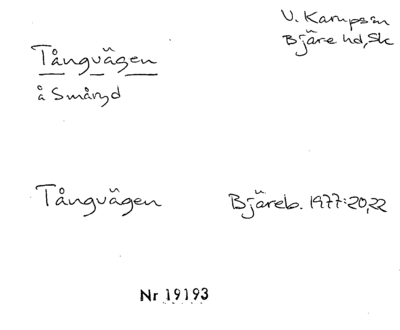 V. Karupssn
Bjäre hd, Sk
Tångvägen
å Småryd
Tångvägen
Bjäreb. 1977:20,22
Nr 19193